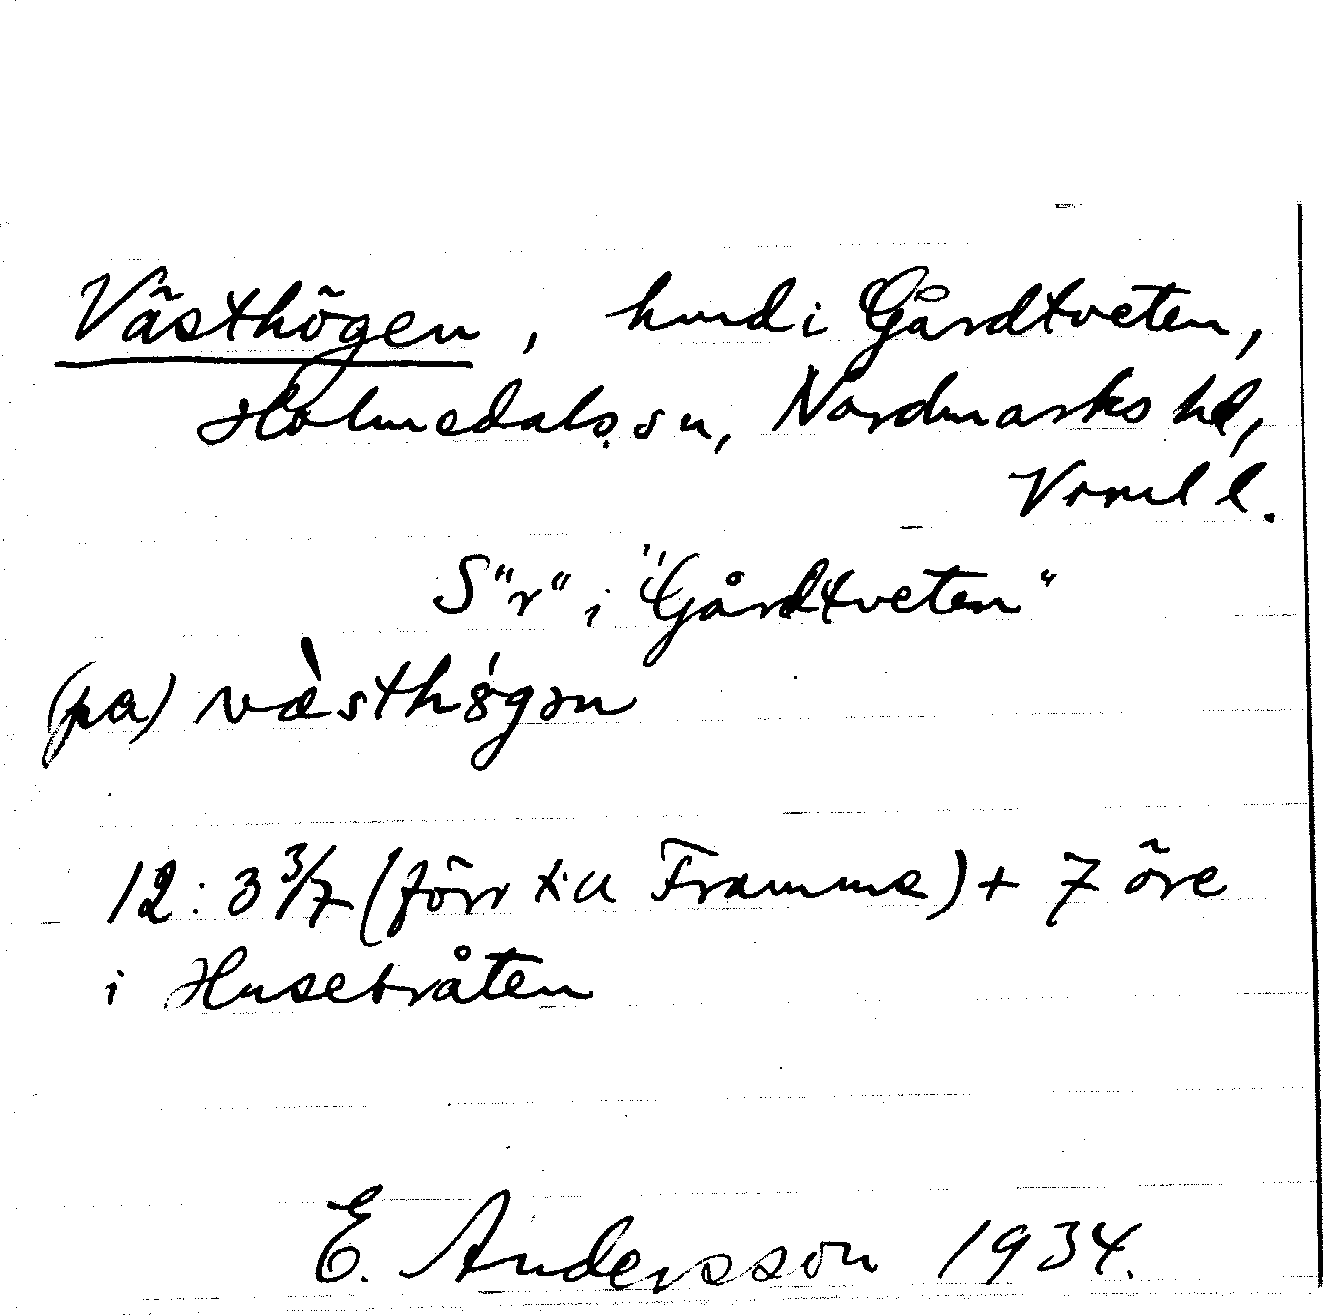 Västhögen, hmd i Gårdtveten,
Holmedals sn, Nordmarks hd,
Vrml l.
S "r" i "Gårdtveten"
(pa) væ̀sthǿgən
12: 3 3/7 (förr till Framme) + 7 öre
i Husebråten
E. Andersson 1934.